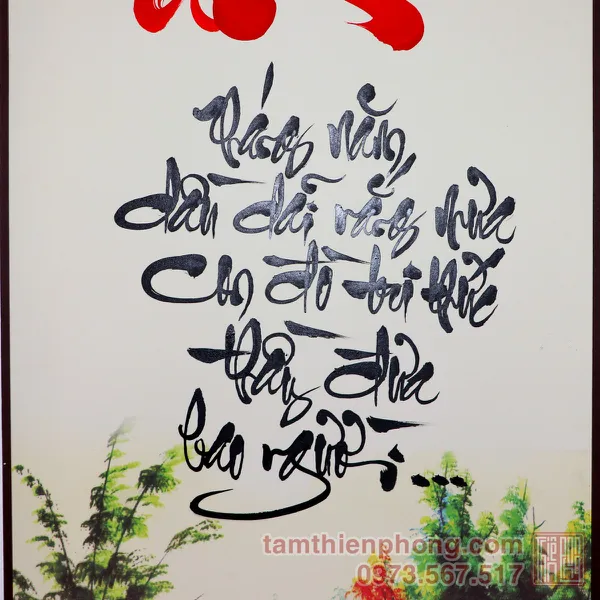 Tháng năm
dầu dãi nắng mưa
Con đò tri thức
thầy đưa
bao người...
tamthienphong.com
0373.567.517